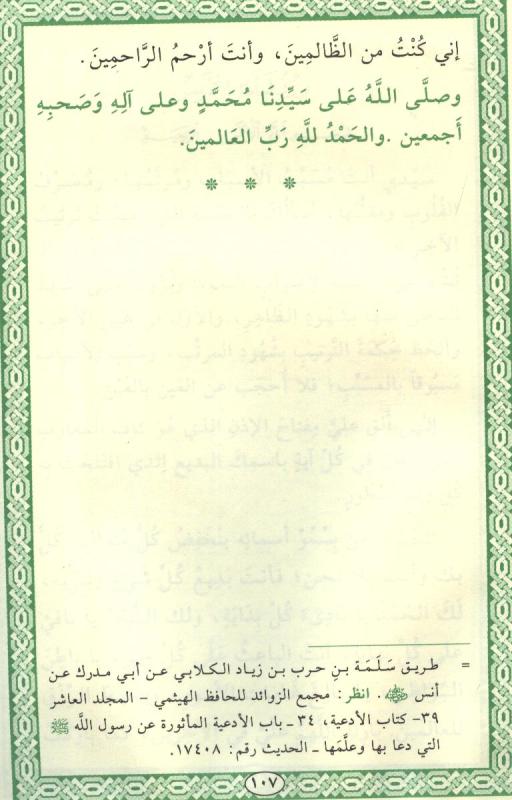 إني كُنْتُ من الظَّالمِينَ، وأنتَ أرْحمُ الرَّاحمِينَ.
وصلَّى اللَّهُ عَلى سَيِّدِنَا مُحَمَّدٍ وعلى آلِهِ وَصَحبِهِ
أَجمعين .والحَمْدُ للَّهِ رَبِّ العَالمينَ.
* * *
= طريق سَلَمَة بنِ حرب بن زياد الكلابي عن أبي مدرك عن
أنس رضي الله عنه. انظر: مجمع الزوائد للحافظ الهيثمي – المجلد العاشر
٣٩- كتاب الأدعية، ٣٤ – باب الأدعية المأثورة عن رسول اللَّه ﷺ
التي دعا بها وعلَّمها – الحديث رقم: ١٧٤٠٨.
١٠٧